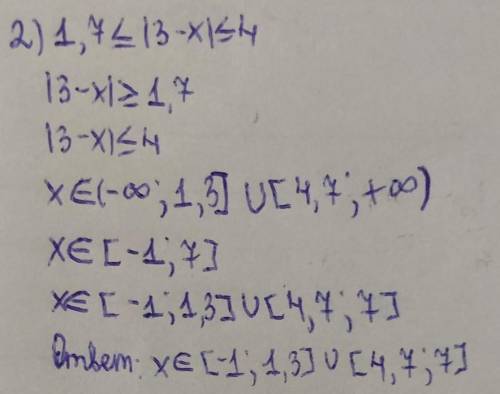 2) 1,7 ≤ |3-x| ≤ 4
|3-x| ≥ 1,7
|3-x| ≤ 4
x∈(-∞; 1,3] ∪ [4,7; +∞)
x∈[-1; 7]
x∈[-1; 1,3] ∪ [4,7; 7]
Ответ: x∈[-1; 1,3] ∪ [4,7; 7]